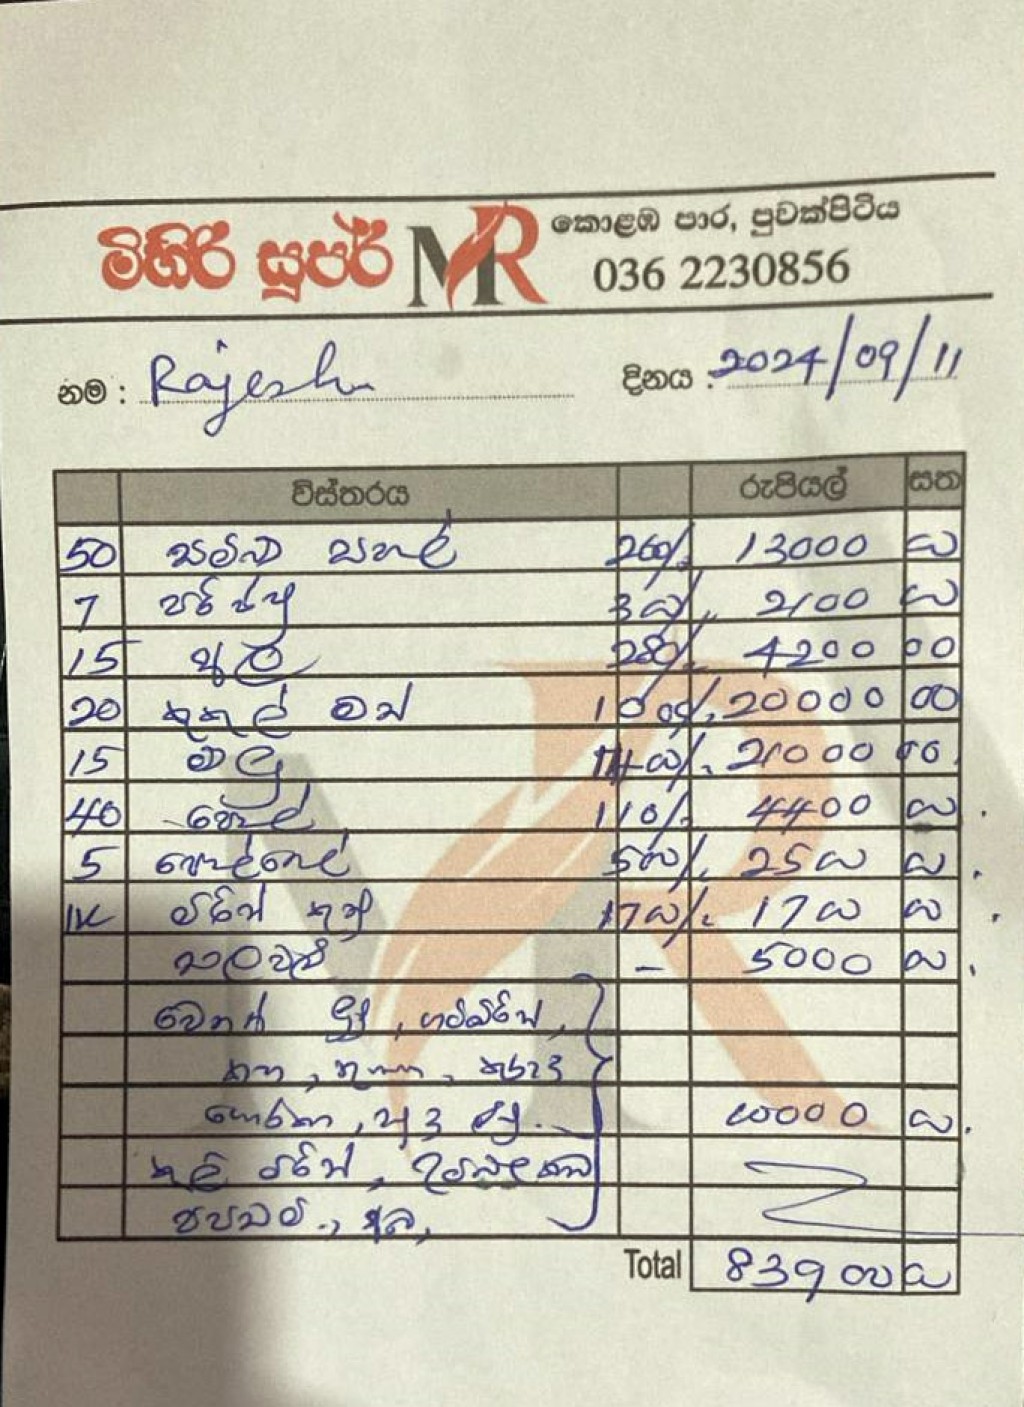 මිහිරි සුපර් MR
කොළඹ පාර, පුවක්පිටිය
036 2230856
නම : Rajesh දිනය : 2024/09/11
විස්තරය රුපියල් සත
50 සම්බා සහල් 260/. 13000 00
7 පරිප්පු 300/. 2100 00
15 ලූ 280/. 4200 00
20 කුකුල් මස් 1000/. 20000 00
15 මාලු 1400/. 21000 00
40 පොල් 110/. 4400 00
5 පොල්තෙල් 500/. 2500 00
1K මිරිස් කුඩු 1700/. 1700 00
එලවළු – 5000 00
වෙනත් ගම්මිරිස්,
කහ, කුරුඳු
ගොරකා, 10000 00
මිරිස්, උම්බලකඩ
Total 83900 00